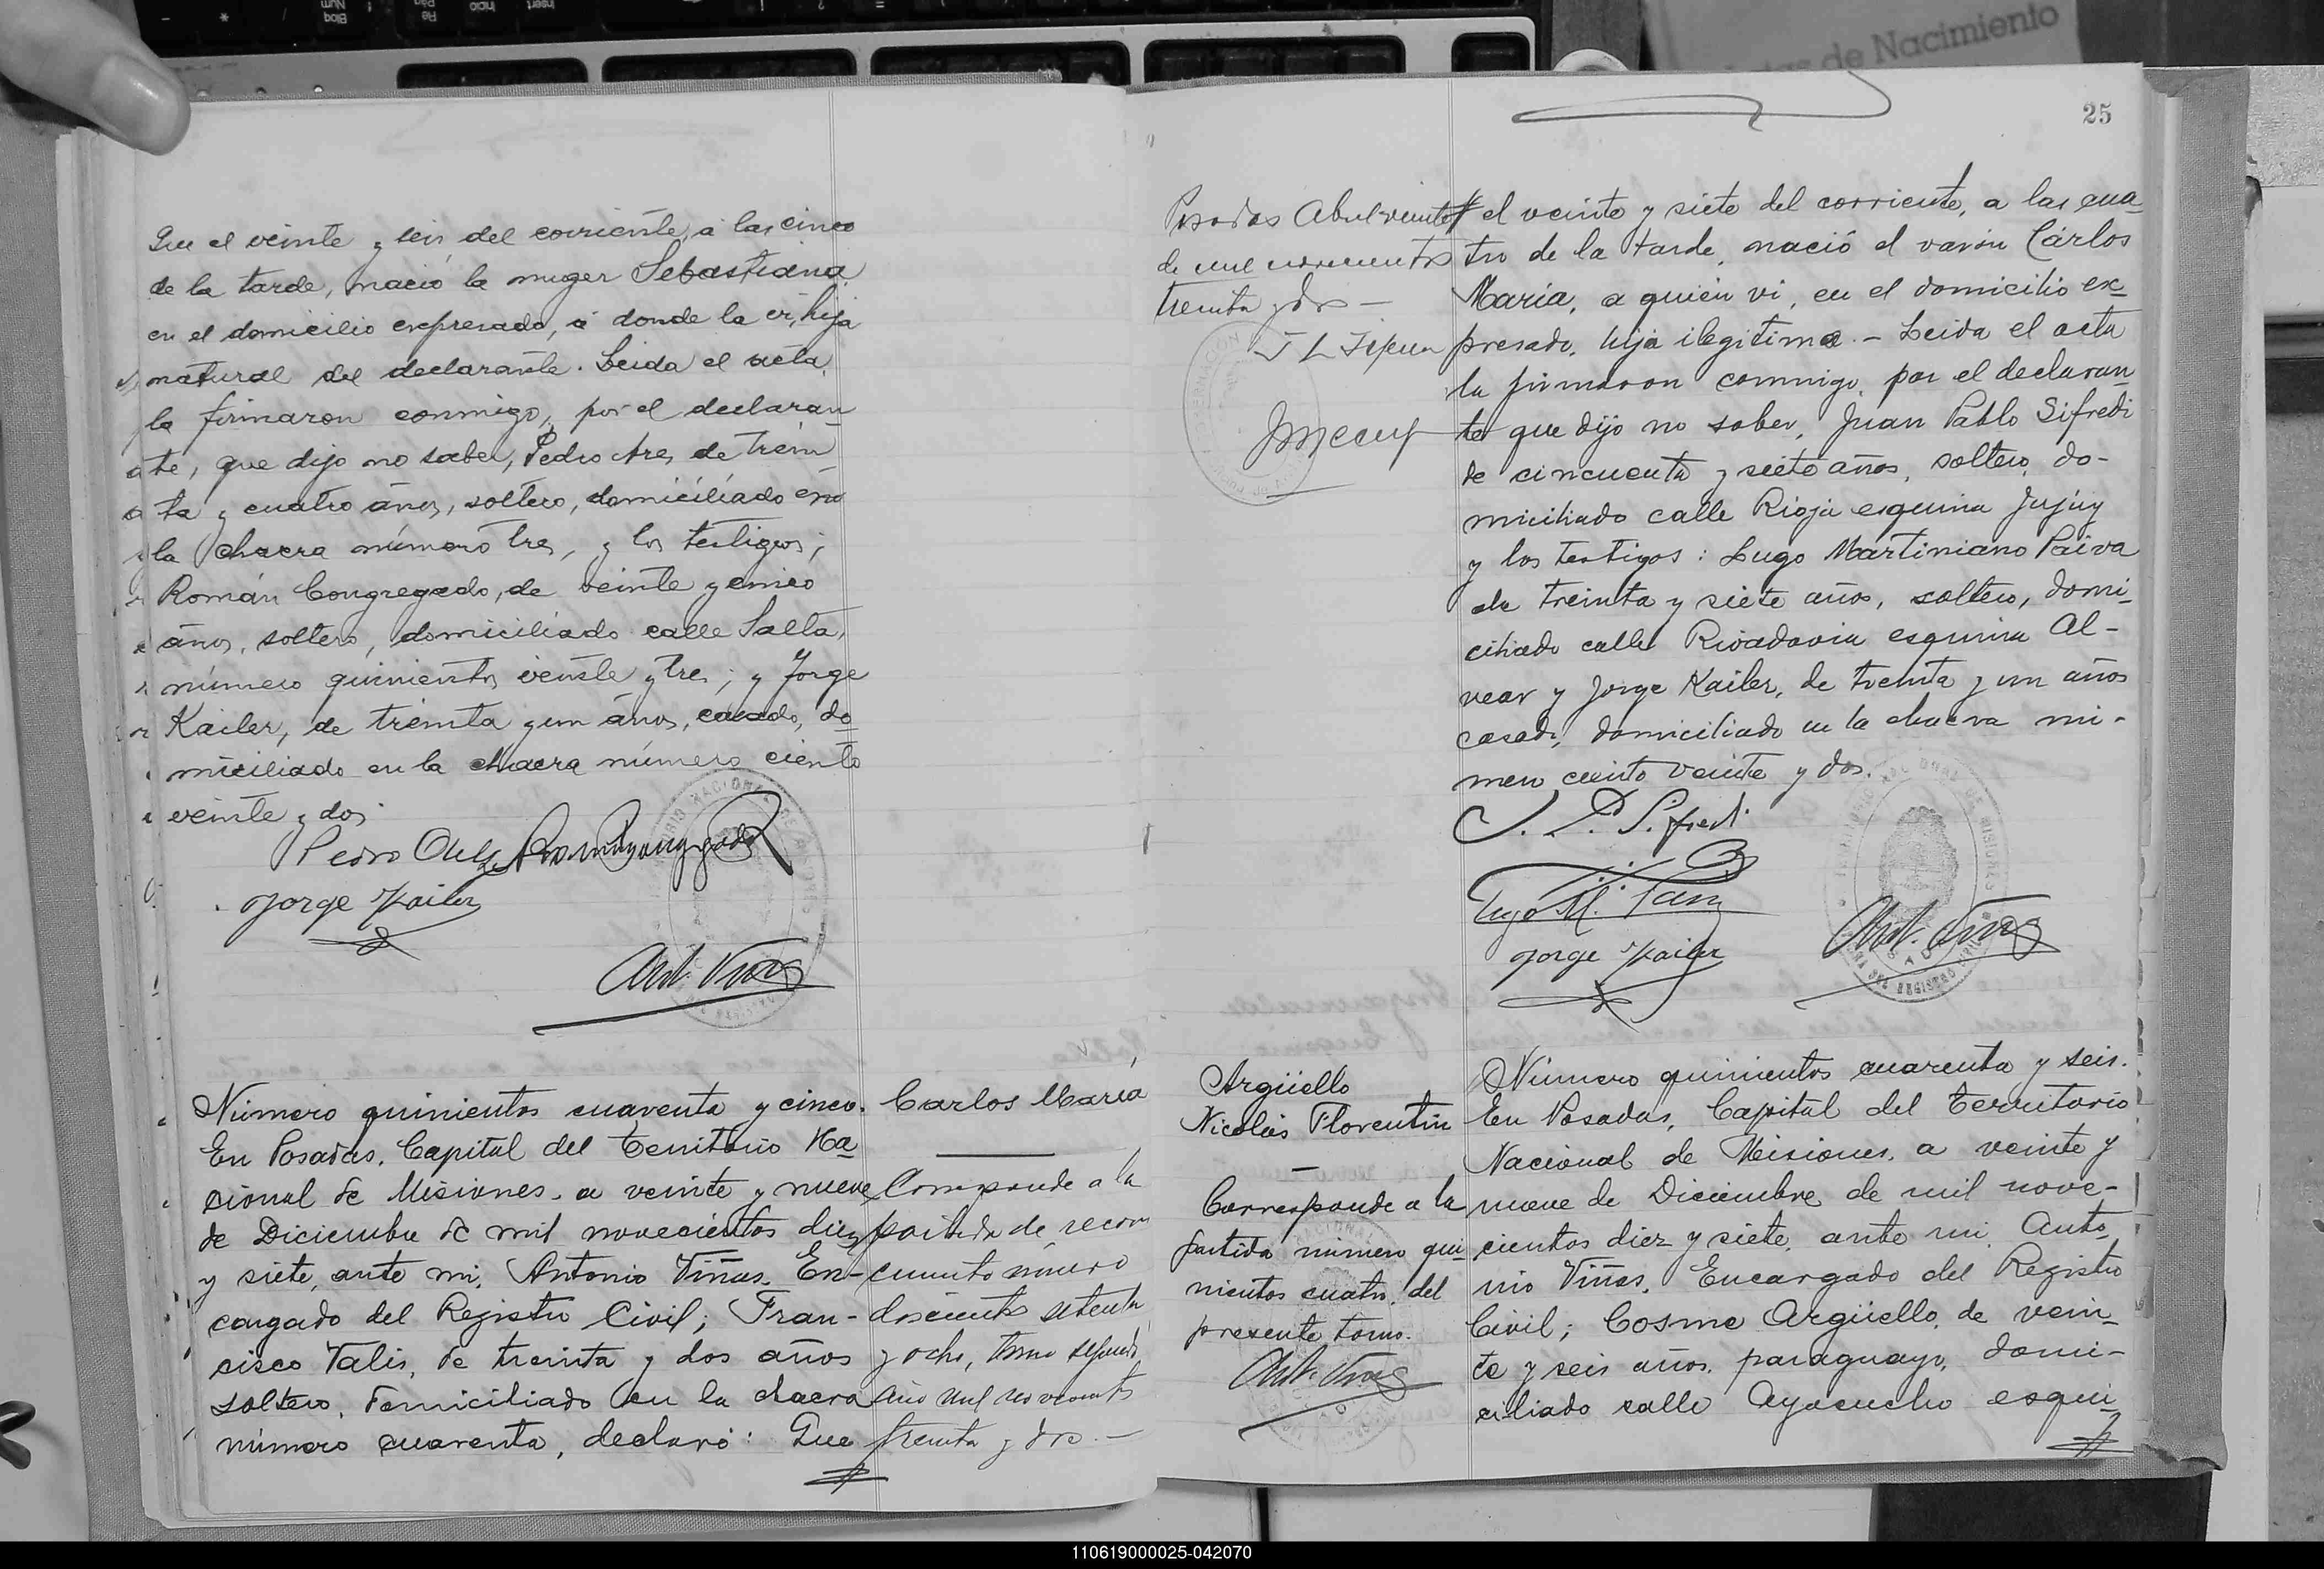 Actas de Nacimiento
25
Que el veinte y seis del corriente, a las cinco
de la tarde, nació la muger Sebastiana
en el domicilio expresado, a donde la vi, hija
natural del declarante. Leida el acta,
la firmaron conmigo, por el declaran
te, que dijo no saber, Pedro de trein
ta y cuatro años, soltero, domiciliado en
la chacra número tres, y los testigos;
Román Congregado, de veinte y cinco
años, soltero, domiciliado calle Salta,
número quinientos veinte y tres; y Jorge
Kailer, de treinta y un años, casado, do
miciliado en la chacra número ciento
veinte y dos
Pedro
Jorge Kailer
Ant. Viñas
Número quinientos cuarenta y cinco.
En Posadas, Capital del Territorio Na
cional de Misiones, a veinte y nueve
de Diciembre de mil novecientos diez
y siete, ante mi, Antonio Viñas, En-
cargado del Registro Civil; Fran-
cisco Talis, de treinta y dos años
soltero, domiciliado en la chacra
número cuarenta, declaró: Que
Carlos María
Corresponde a la
partida de recono
cimiento número
doscientos setenta
y ocho, tomo segundo
año mil novecientos
treinta y dos.—
Posadas Abril veinte
de mil novecientos
treinta y dos —
el veinte y siete del corriente, a las cua
tro de la tarde, nació el varón Cárlos
María, a quien vi, en el domicilio ex
presado, hijo ilegitimo.- Leida el acta
la firmaron conmigo, por el declaran
te que dijo no saber, Juan Pablo Sifredi
de cincuenta y siete años, soltero, do-
miciliado calle Rioja esquina Jujuy
y los testigos: Lugo Martiniano Paiva
de treinta y siete años, soltero, domi
ciliado calle Rivadavia esquina Al-
vear y Jorge Kailer, de treinta y un años
casado, domiciliado en la chacra nú-
mero ciento veinte y dos.
J. P. Sifredi
Jorge Kailer
Ant. Viñas
Argüello
Nicolás Florentín
—
Corresponde a la
partida número qui
nientos cuatro, del
presente tomo.
Ant. Viñas
Número quinientos cuarenta y seis.
En Posadas, Capital del Territorio
Nacional de Misiones, a veinte y
nueve de Diciembre de mil nove-
cientos diez y siete, ante mi, Anto
nio Viñas, Encargado del Registro
Civil; Cosme Argüello, de vein
te y seis años, paraguayo, domi-
ciliado calle Ayacucho esqui
110619000025-042070